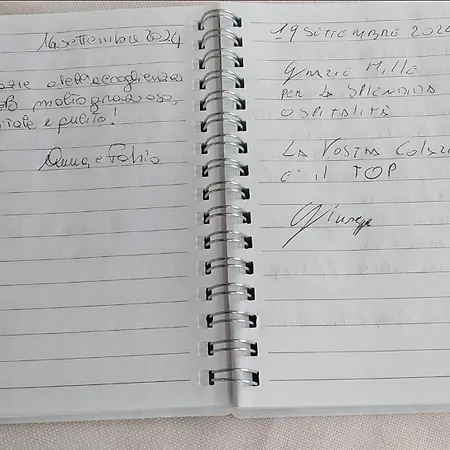 settembre 2024
molto graziosa,
e pulito!
Anna e Fabio
19 SETTEMBRE 202
GRAZIE MILLE
PER LA SPLENDIDA
OSPITALITÀ
LA VOSTRA COLAZ
È IL TOP
Giusep